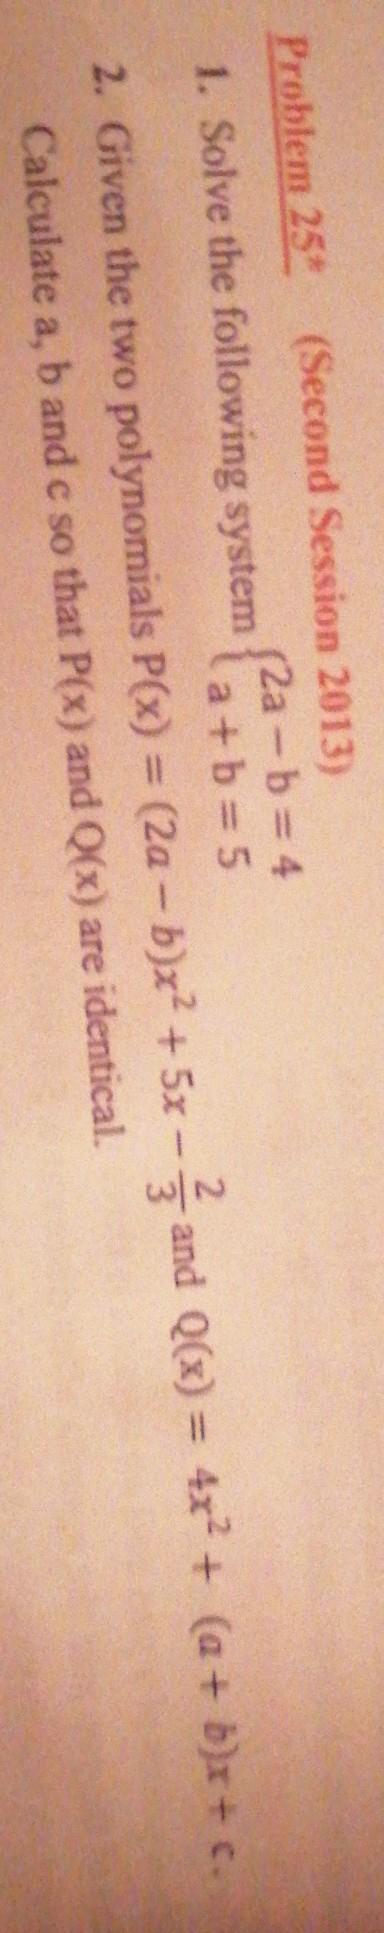 Problem 25* (Second Session 2013)
1. Solve the following system {2a – b = 4
a + b = 5
2. Given the two polynomials P(x) = (2a – b)x² + 5x – 2/3 and Q(x) = 4x² + (a + b)x + c.
Calculate a, b and c so that P(x) and Q(x) are identical.